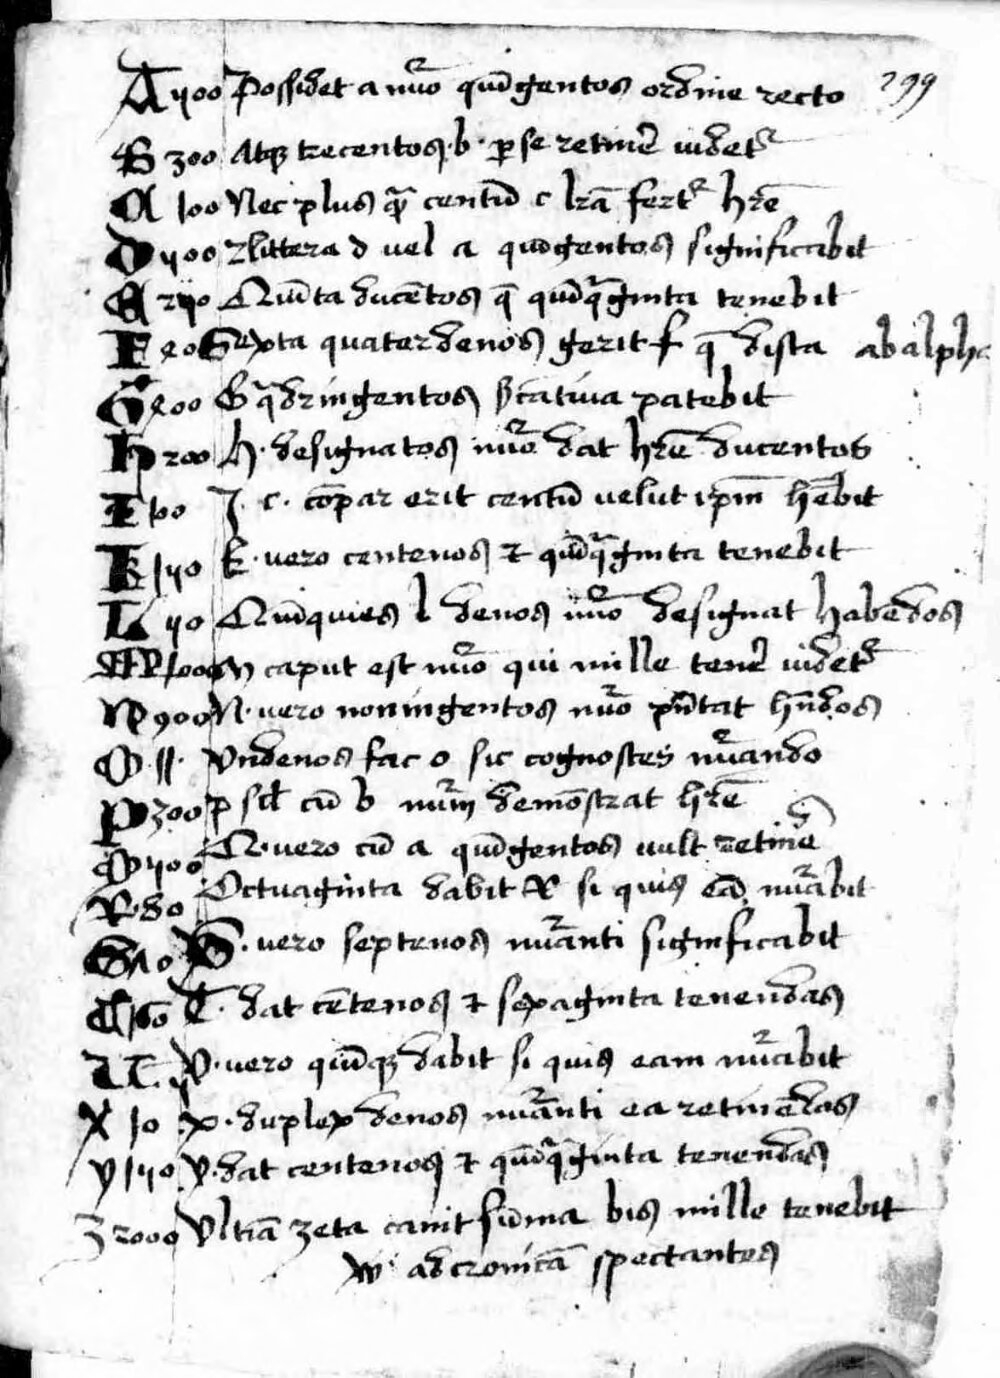 A 500 Possidet a nūo quīgentos ordine recto 299
B 300 Atqz trecentos .b. p se retinēr videtr
C 100 Nec plus qm centū c lrā fertr hrē
D 500 littera d vel a quīgentos significabit
E 250 Quīta ducētos q quīqgīnta tenebit
F 40 Sexta quaterdenos gerit f q dista ab alpha
G 400 G qdringentos patebit
H 200 H. designatos nūo dat hrē ducentos
I 100 I. c. cōpar erit centū velut ipm hēbit
K 150 K. vero centenos et quīqginta tenebit
L 50 Quīquies l denos nūo designat habēdos
M 1000 M caput est nūo qui mille tenēr videtr
N 900 N. vero noningentos nūo pntat hndos
O .11. Undenos fac o sic cognosces nūando
P 300 p cū b nūm demōstrat hrē
Q 500 Q. vero cū a quīgentos vult retinē
R. 80 Octuaginta dabit R si quis eā nūabit
S 70 S. vero septenos nūanti significabit
T 160 T. dat cētenos et sexaginta tenendas
V. 5 V. vero quīqz dabit si quis eam nūabit
X 10 x. duplex denos nūanti ea retinēdos
y 150 y. dat centenos et quīqginta tenendas
Z 2000 Ultīa zeta canit fīma bis mille tenebit
ad cronicā spectantes